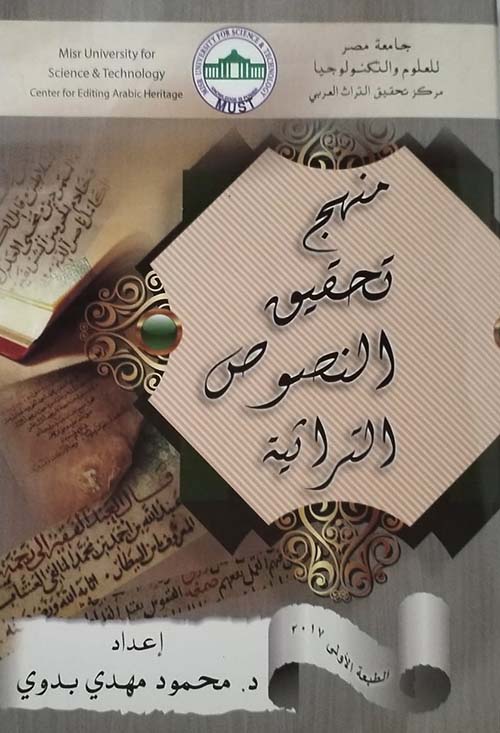 Misr University for
Science & Technology
Center for Editing Arabic Heritage
MISR UNIVERSITY FOR SCIENCE & TECHNOLOGY
MUST
جامعة مصر
للعلوم والتكنولوجيا
مركز تحقيق التراث العربي
منهج
تحقيق
النصوص
التراثية
الطبعة الأولى ٢٠١٧
إعداد
د. محمود مهدي بدوي